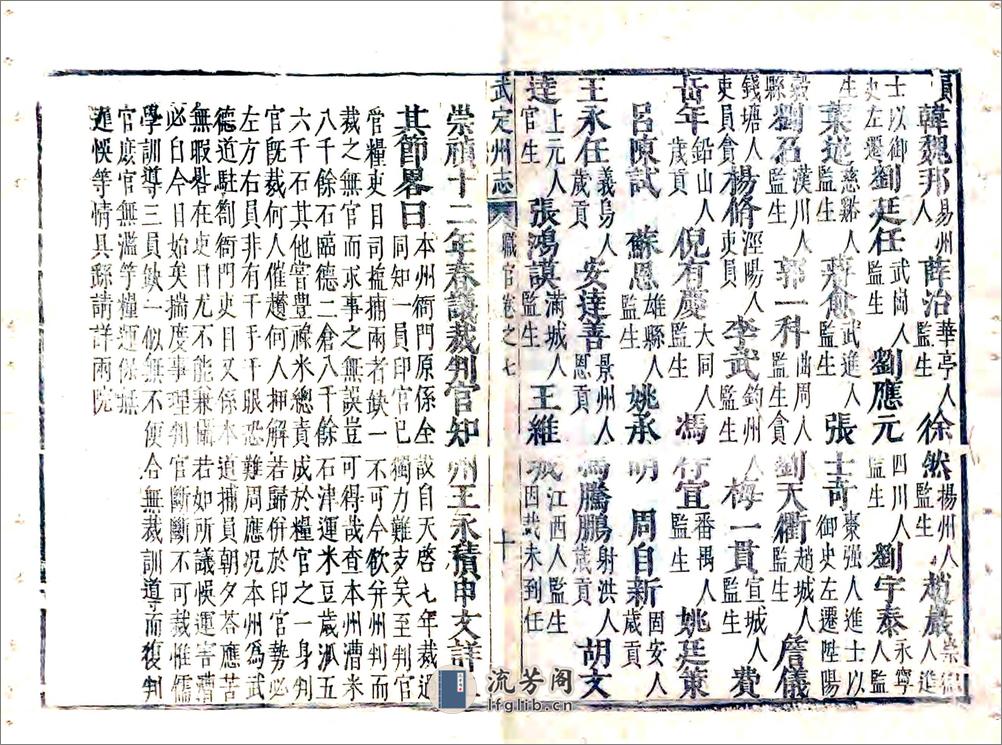 員韓魏邦易州人薛治華亭人監生徐然揚州人監生趙嚴崇德人進
士以御史左遷劉廷任武崗人監生劉應元四川人監生劉宇泰永寧人監
生葉廷慈谿人監生蔣愈武進人監生張士奇棗强人進士以御史左遷陞陽
穀縣劉召漢川人監生郭一科曲周人監生貪劉天衢趙城人監生詹儀
錢塘人吏員貪楊脩涇陽人吏員李武鈞州人監生梅一貫宣城人監生費
岳年鉛山人歲貢倪有慶大同人監生馮行宜番禺人監生姚廷策
呂陳試蘇恩雄縣人監生姚承明周自新固安人歲貢
王永任義烏人歲貢安達善景州人恩貢馮騰鵬射洪人歲貢胡文
逵上元人官生張鴻謨滿城人監生王維城江西人監生因裁未到任
武定州志 職官卷之七 十
崇禎十二年春議裁判官知州王永積申文詳上
其節畧曰本州衙門原係全設自天啓七年裁過
同知一員印官已獨力難支矣至判官
管糧吏目司捕兩者缺一不可今欲并州判而
裁之無官而求事之無誤豈可得哉查本州漕米
八千餘石臨德二倉八千餘石津運米豆歲派五
六千石其他官豐祿米總責成於糧官之一身
官既裁何人催趲何人押解若歸併於印官勢必
左方右員非有千手千眼恐難周應况本州為武
德道駐劄衙門吏目又係本道捕員朝夕荅應苦
無暇晷在吏目尤不能兼攝若如所議悞運害漕
必自今日始矣揣度事理判官斷斷不可裁惟儒
學訓導三員缺一似無不便合無裁訓導而復判
官庶官無濫竽糧運保無
遲悞等情具繇請詳兩院
流芳阁
lfglib.cn